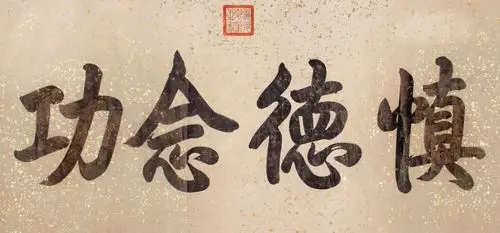 慎德念功